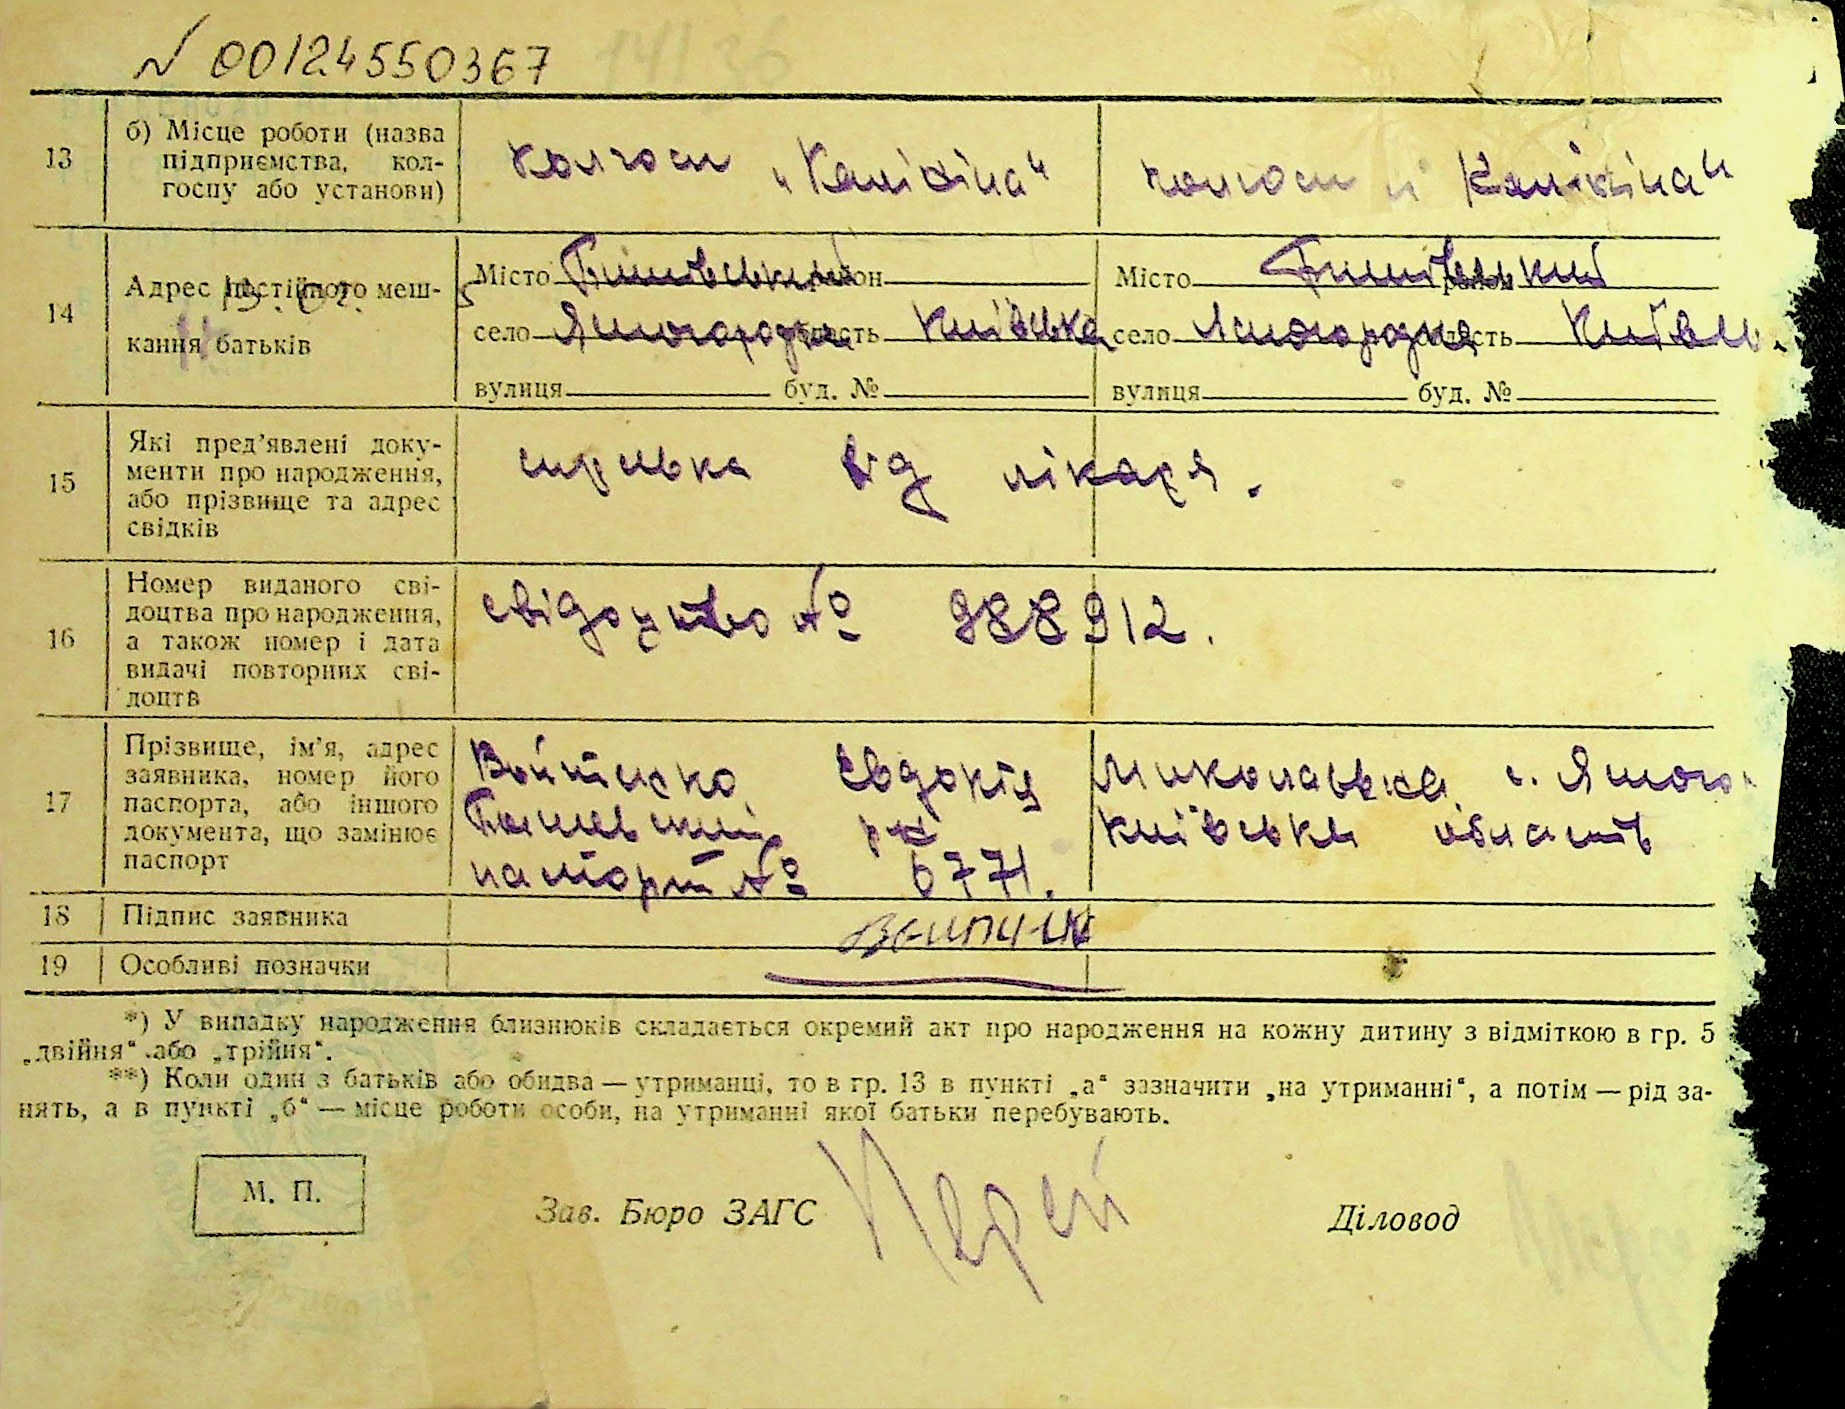 N 00124550367
13 б) Місце роботи (назва підприємства, кол-госпу або установи) колгосп „Калініна“ колгосп „Калініна“
14 Адрес постійного меш-кання батьків
Місто район Місто район
село Ясногородка область Київська село Ясногородка область Київськ.
вулиця буд. № вулиця буд. №
15 Які пред’явлені доку-менти про народження, або прізвище та адрес свідків
справка від лікаря.
16 Номер виданого сві-доцтва про народження, а також номер і дата видачі повторних сві-доцтв
свідоцтво № 988912.
17 Прізвище, ім’я, адрес заявника, номер його паспорта, або іншого документа, що замінює паспорт
Євдокія Миколаївна с. Ясного
київська область
паспорт № 6771.
18 Підпис заявника
19 Особливі позначки
*) У випадку народження близнюків складається окремий акт про народження на кожну дитину з відміткою в гр. 5
„двійня“ або „трійня“.
**) Коли один з батьків або обидва — утриманці, то в гр. 13 в пункті „а“ зазначити „на утриманні“, а потім — рід за-
нять, а в пункті „б“ — місце роботи особи, на утриманні якої батьки перебувають.
М. П.
Зав. Бюро ЗАГС Діловод